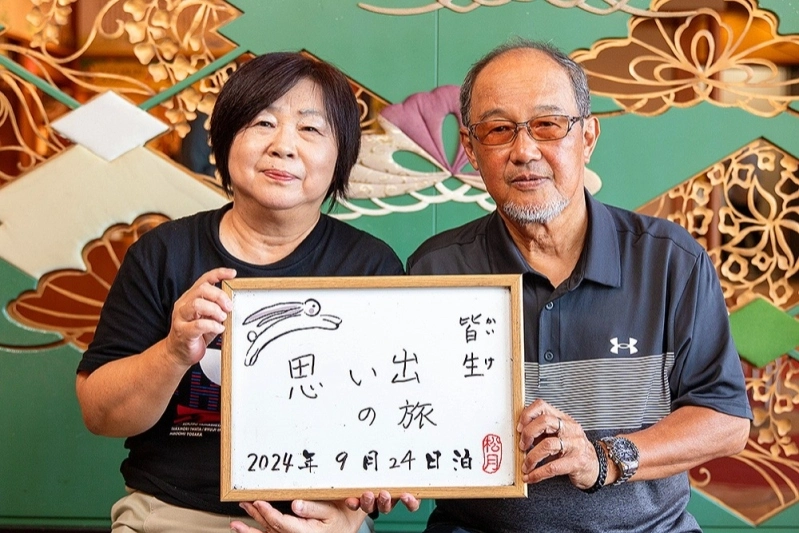 皆生
かいけ
思い出
の旅
2024年 9月24日泊
松月